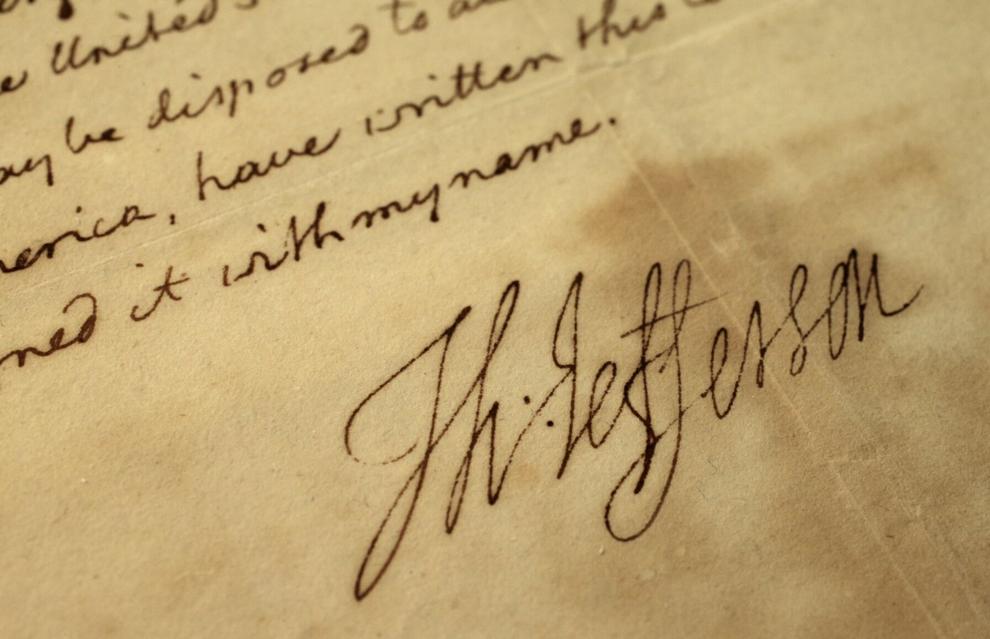 United
ay be disposed to
erica, have written this
ned it with my name.
Th: Jefferson